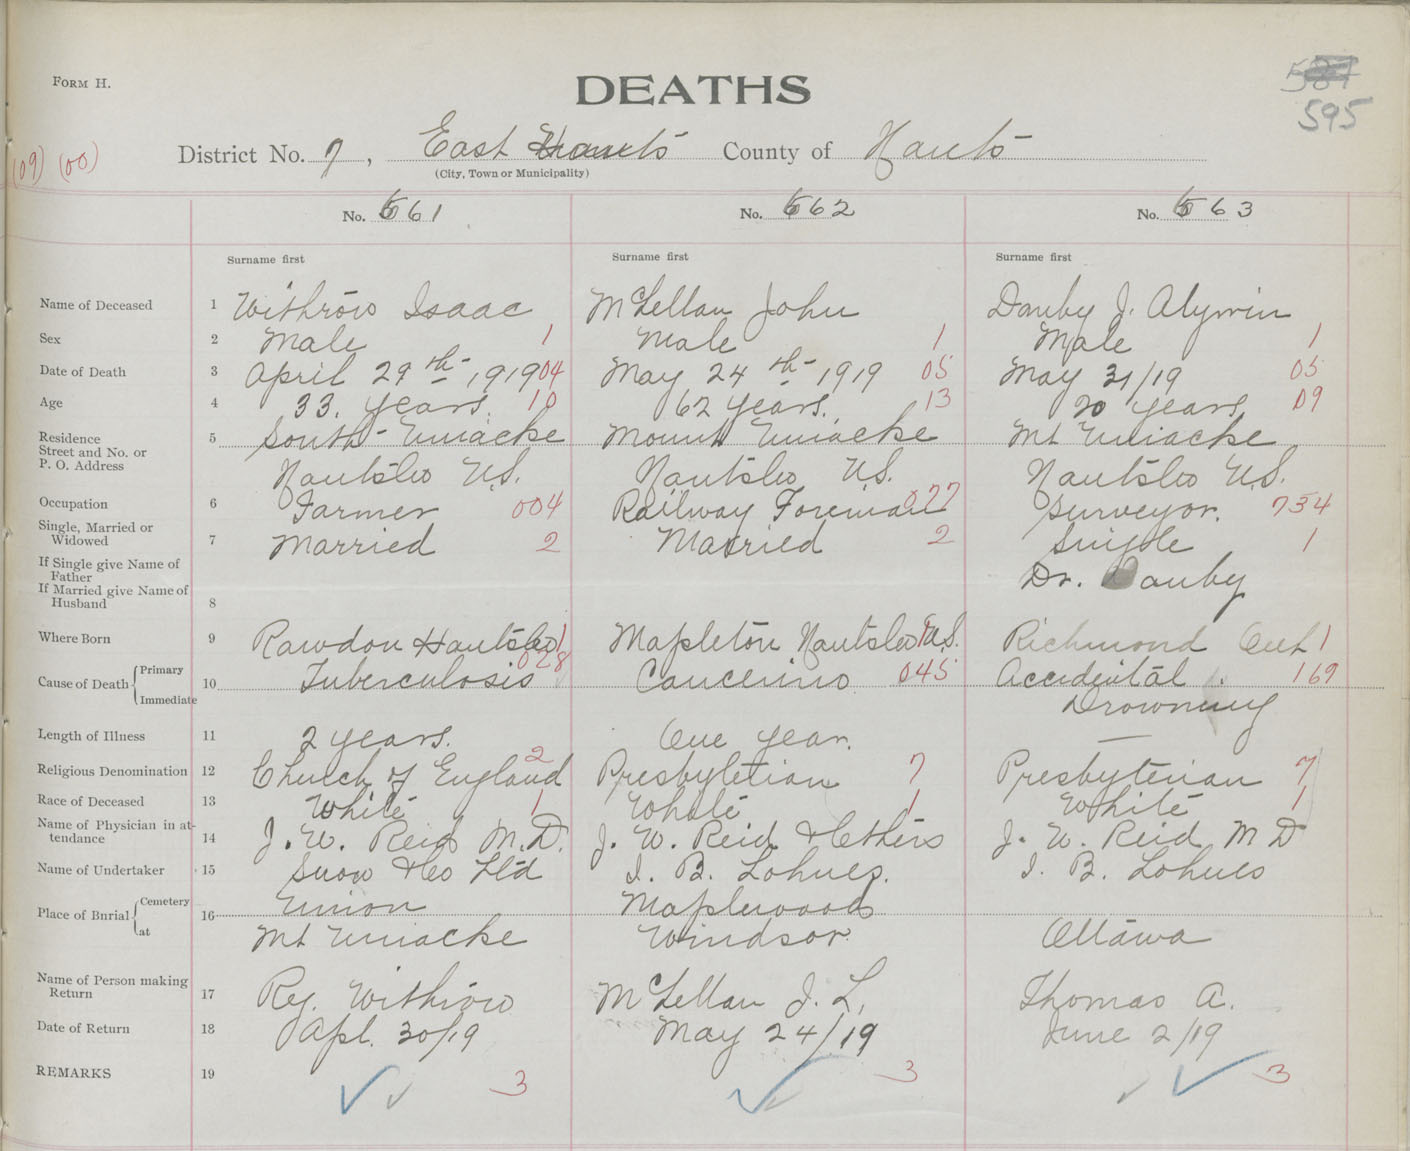 FORM H.
DEATHS
587
595
(09) (00)
District No. 7, East Hants County of Hants
(City, Town or Municipality)
No. 561 No. 562 No. 563
Surname first Surname first Surname first
Name of Deceased 1 Withrow Isaac McLellan John Danby J. Alywin
Sex 2 Male 1 Male 1 Male 1
Date of Death 3 April 29th 1919 04 May 24th 1919 05 May 31/19 05
Age 4 33. years. 10 62 years. 13 20 years 09
Residence 5 South Uniacke Mount Uniacke Mt Uniacke
Street and No. or
P. O. Address Hants Co N.S. Hants Co N.S. Hants Co N.S.
Occupation 6 Farmer 004 Railway Foreman 077 Surveyor. 734
Single, Married or
Widowed 7 Married 2 Married 2 Single 1
If Single give Name of
Father Dr. Danby
If Married give Name of
Husband 8
Where Born 9 Rawdon Hants Co 1 Mapleton Hants Co N.S. 1 Richmond Ont 1
Cause of Death { Primary 10 Tuberculosis 028 045 Accidental 169
Immediate Drowning
Length of Illness 11 2 years. One year. —
Religious Denomination 12 Church of England 2 Presbyterian 7 Presbyterian 7
Race of Deceased 13 White 1 White 1 White 1
Name of Physician in at-
tendance 14 J. W. Reid M.D. J. W. Reid & Others J. W. Reid M D
Name of Undertaker 15 Snow & Co Ltd I. B. Lohnes. I. B. Lohnes
Place of Burial { Cemetery 16 Union Maplewoods
at Mt Uniacke Windsor. Ottawa
Name of Person making
Return 17 Reg. Withrow McLellan J. L. Thomas A.
Date of Return 18 Apl. 30/19 May 24/19 June 2/19
REMARKS 19 3 3 3